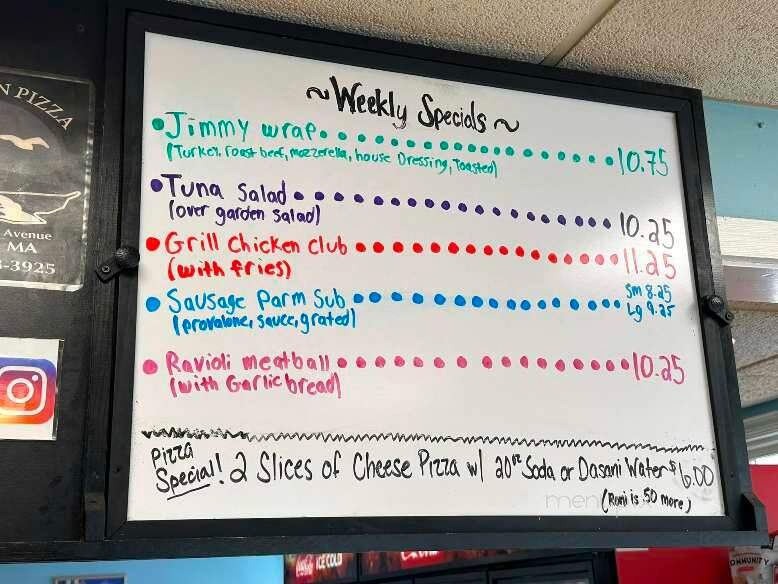 ~ Weekly Specials ~
• Jimmy wrap 10.75
(Turkey, roast beef, mozzerella, house Dressing, Toasted)
• Tuna Salad 10.25
(over garden salad)
• Grill Chicken Club 11.25
(with fries)
• Sausage Parm Sub Sm 8.25
Lg 9.25
(provalone, sauce, grated)
• Ravioli meatball 10.25
(with Garlic bread)
Pizza
Special! 2 Slices of Cheese Pizza w/ 20oz Soda or Dasani Water $6.00
(Roni is .50 more)
N PIZZA
Avenue
MA
3-3925
ICE COLD